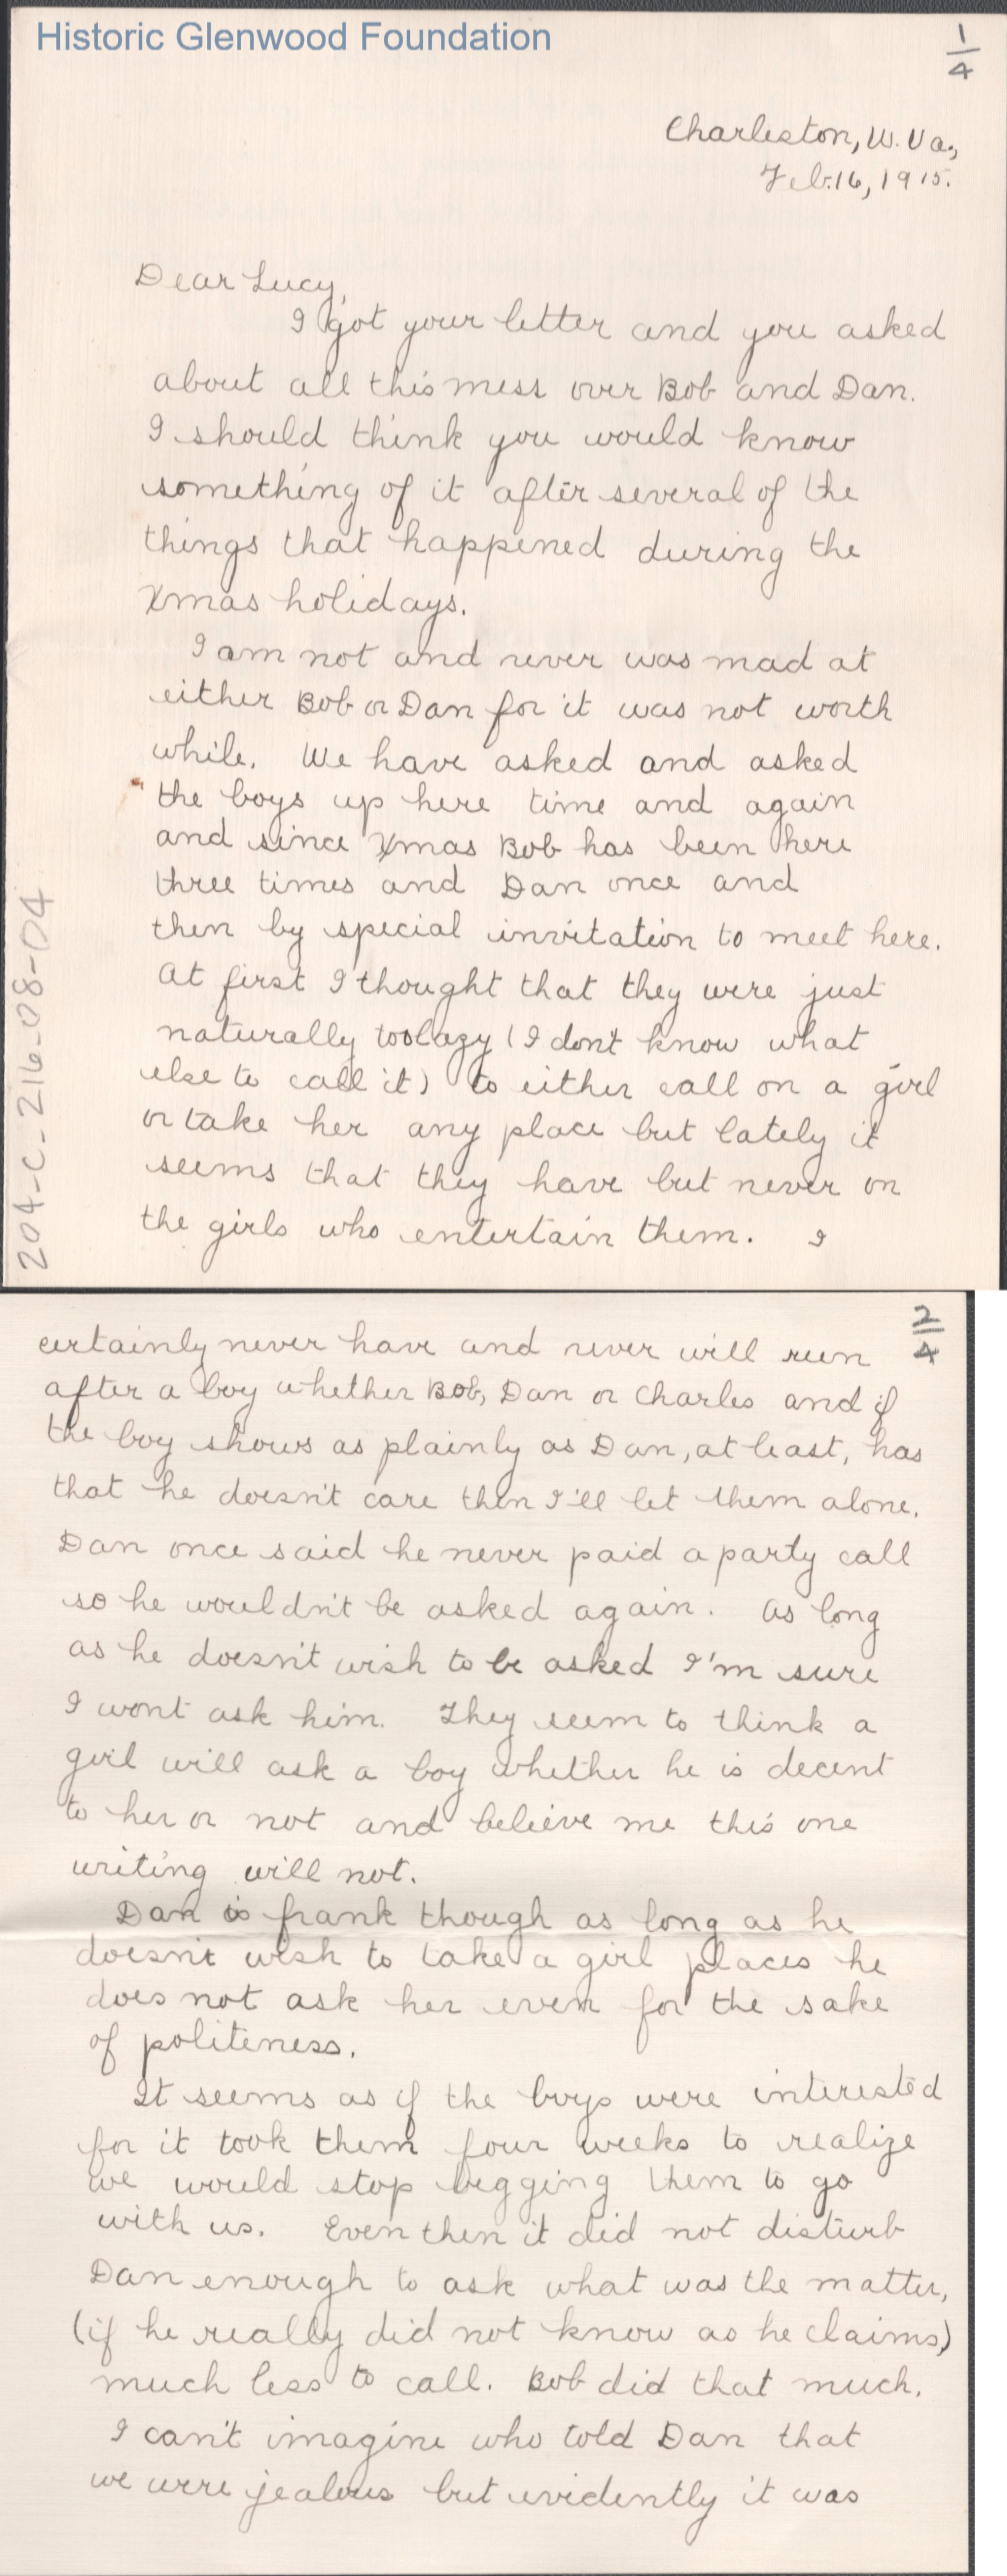 Historic Glenwood Foundation
1/4
Charleston, W. Va.,
Feb. 16, 1915.
Dear Lucy,
I got your letter and you asked
about all this mess over Bob and Dan.
I should think you would know
something of it after several of the
things that happened during the
Xmas holidays.
I am not and never was mad at
either Bob or Dan for it was not worth
while. We have asked and asked
the boys up here time and again
and since Xmas Bob has been here
three times and Dan once and
then by special invitation to meet here.
At first I thought that they were just
naturally too lazy (I don't know what
else to call it) to either call on a girl
or take her any place but lately it
seems that they have but never on
the girls who entertain them. I
204-C-216-08-04
2/4
certainly never have and never will run
after a boy whether Bob, Dan or Charles and if
the boy shows as plainly as Dan, at least, has
that he doesn't care then I'll let them alone.
Dan once said he never paid a party call
so he wouldn't be asked again. As long
as he doesn't wish to be asked I'm sure
I wont ask him. They seem to think a
girl will ask a boy whether he is decent
to her or not and believe me this one
writing will not.
Dan is frank though as long as he
doesn't wish to take a girl places he
does not ask her even for the sake
of politeness.
It seems as if the boys were interested
for it took them four weeks to realize
we would stop begging them to go
with us. Even then it did not disturb
Dan enough to ask what was the matter,
(if he really did not know as he claims)
much less to call. Bob did that much.
I can't imagine who told Dan that
we were jealous but evidently it was